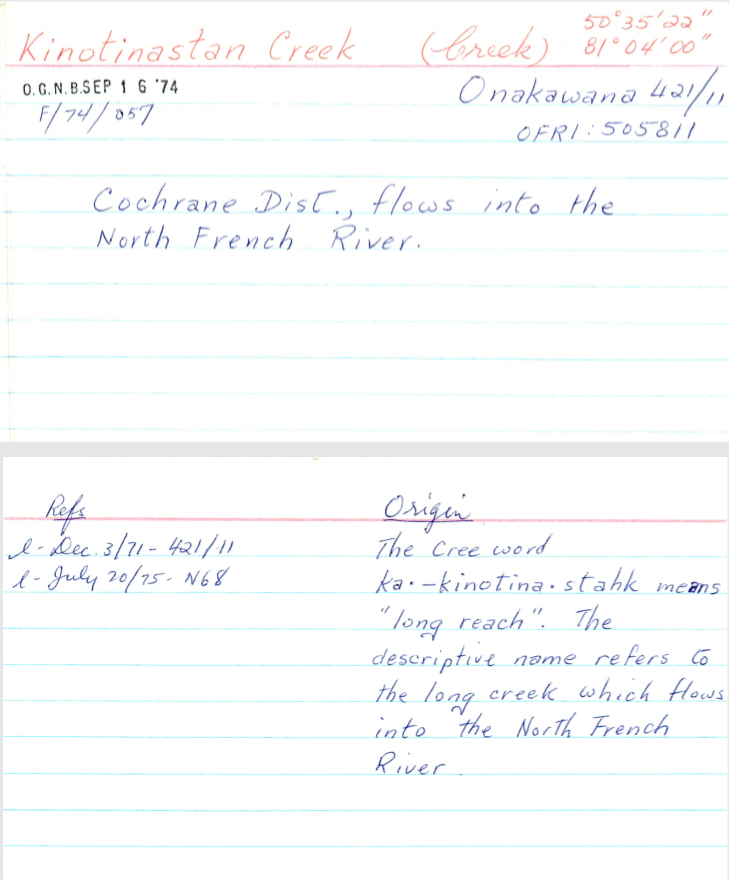 Kinotinastan Creek (Creek) 50°35'22"
81°04'00"
O.G.N.B. SEP 16 '74
Onakawana 42I/11
F/74/057
OFRI: 505811
Cochrane Dist., flows into the
North French River.
Refs
Origin
l - Dec. 3/71 - 42I/11
l - July 20/75 - N68
The Cree word
ka·-kinotina·stahk means
"long reach". The
descriptive name refers to
the long creek which flows
into the North French
River.